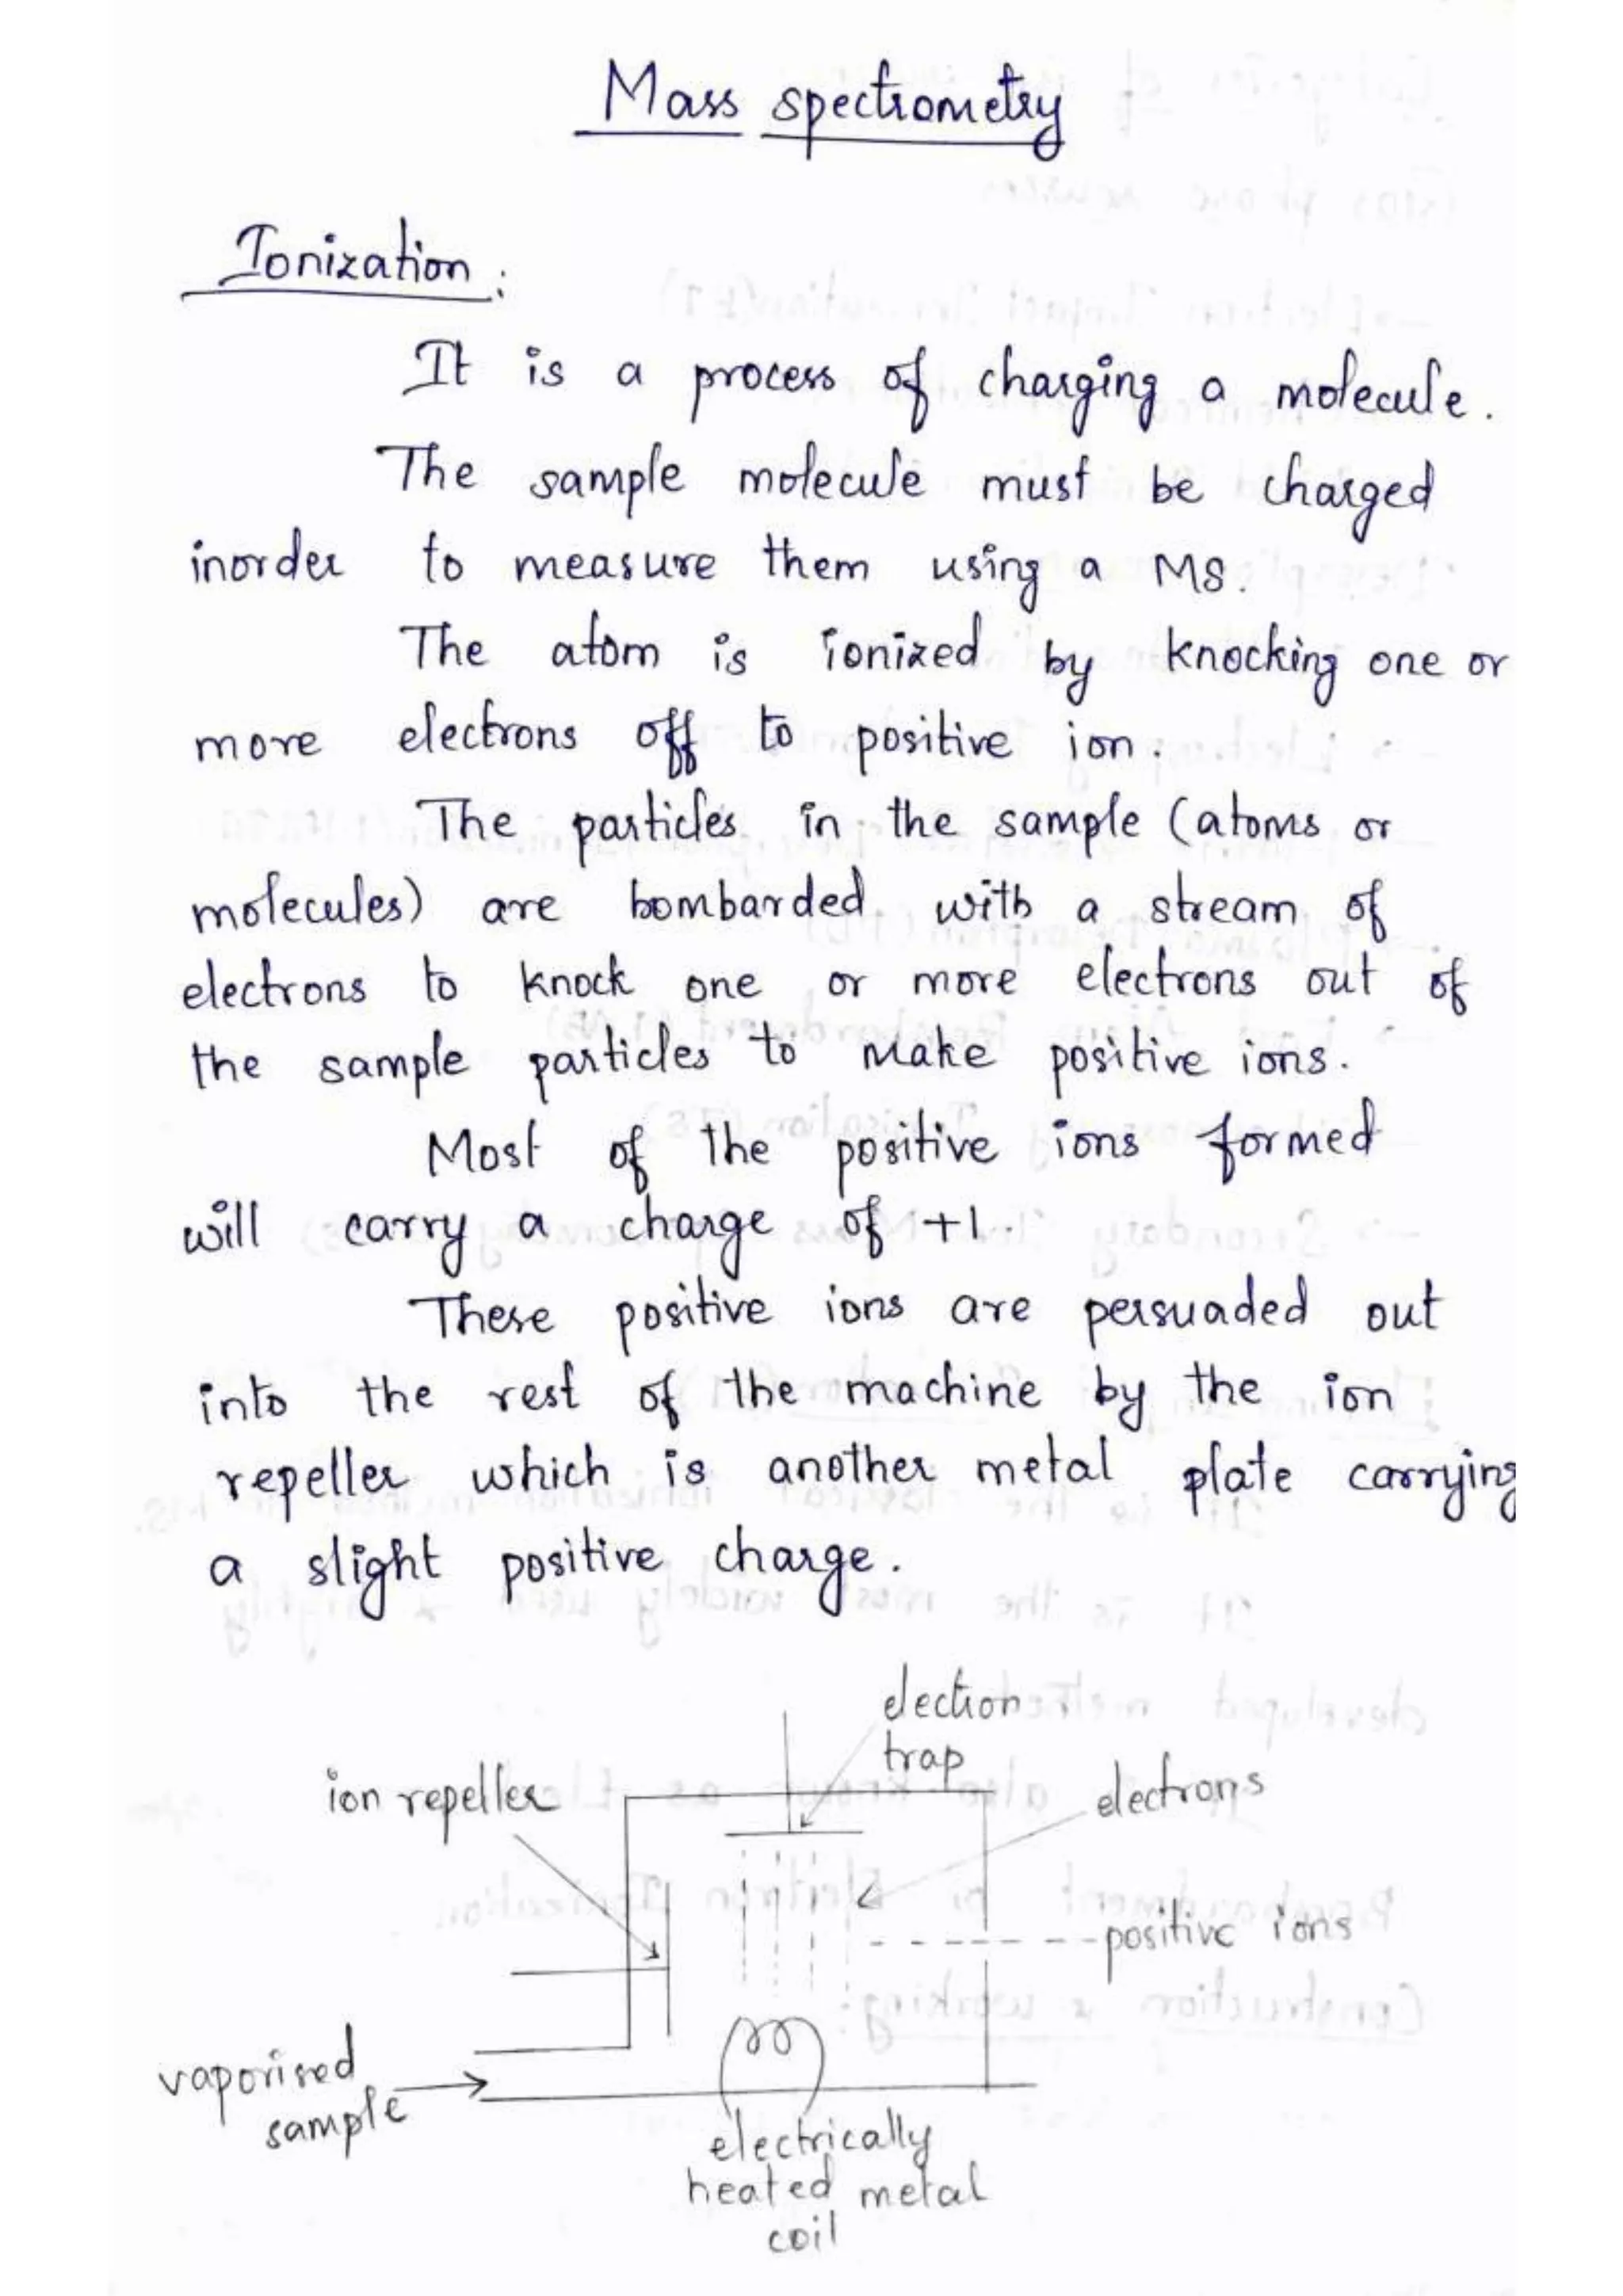 Mass spectrometry
Ionization:
It is a process of charging a molecule.
The sample molecule must be charged
inorder to measure them using a MS.
The atom is ionized by knocking one or
more electrons off to positive ion.
The particles in the sample (atoms or
molecules) are bombarded with a stream of
electrons to knock one or more electrons out of
the sample particles to make positive ions.
Most of the positive ions formed
will carry a charge of +1.
These positive ions are persuaded out
into the rest of the machine by the ion
repeller which is another metal plate carrying
a slight positive charge.
electron
trap
ion repeller
electrons
positive ions
vaporised
sample
electrically
heated metal
coil